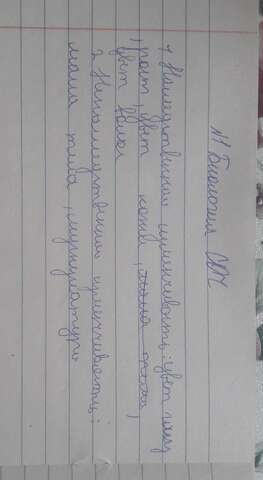 №1 Биология СОЧ
1 Наследственная изменчивость: цвет глаз,
рост, цвет кожи,
цвет волос
2 Ненаследственная изменчивость:
масса тела, мускулатура